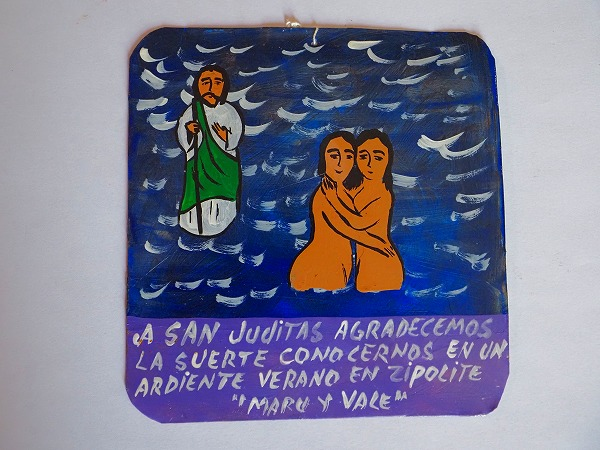 A SAN JUDITAS AGRADECEMOS
LA SUERTE CONOCERNOS EN UN
ARDIENTE VERANO EN ZIPOLITE
"MARU Y VALE"